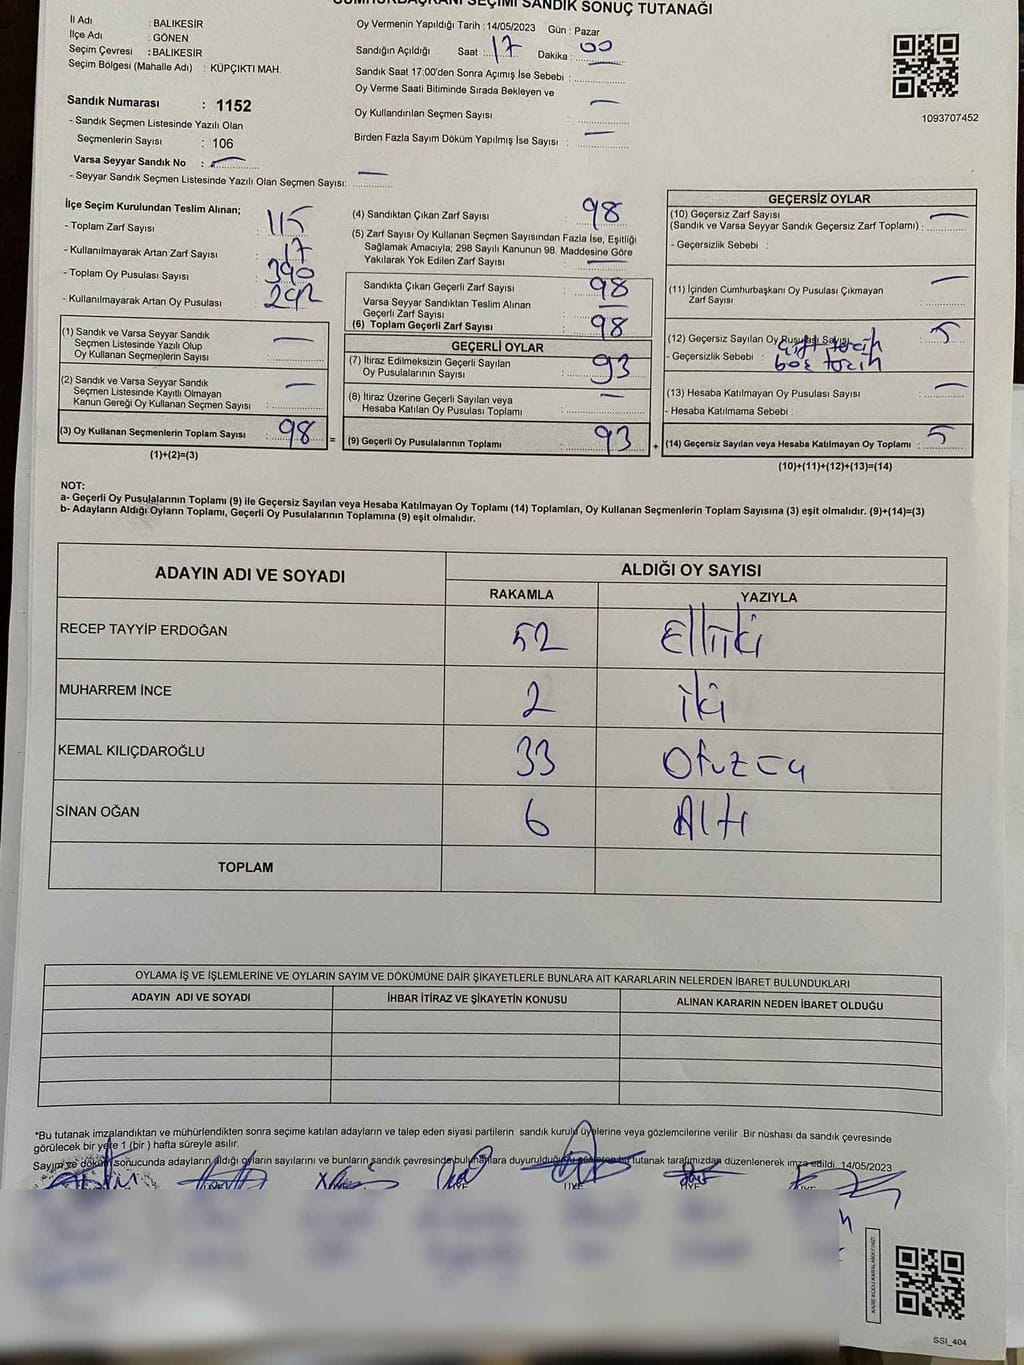 SEÇİMİ SANDIK SONUÇ TUTANAĞI
İl Adı : BALIKESİR
İlçe Adı : GÖNEN
Seçim Çevresi : BALIKESİR
Seçim Bölgesi (Mahalle Adı) : KÜPÇIKTI MAH.
Sandık Numarası : 1152
- Sandık Seçmen Listesinde Yazılı Olan
Seçmenlerin Sayısı : 106
Varsa Seyyar Sandık No : —
- Seyyar Sandık Seçmen Listesinde Yazılı Olan Seçmen Sayısı: —
Oy Vermenin Yapıldığı Tarih : 14/05/2023 Gün : Pazar
Sandığın Açıldığı Saat : 17 Dakika : 00
Sandık Saat 17:00'den Sonra Açımış İse Sebebi :
Oy Verme Saati Bitiminde Sırada Bekleyen ve
Oy Kullandırılan Seçmen Sayısı : —
Birden Fazla Sayım Döküm Yapılmış İse Sayısı : —
1093707452
İlçe Seçim Kurulundan Teslim Alınan;
- Toplam Zarf Sayısı : 115
- Kullanılmayarak Artan Zarf Sayısı : 17
- Toplam Oy Pusulası Sayısı : 390
- Kullanılmayarak Artan Oy Pusulası : 292
(1) Sandık ve Varsa Seyyar Sandık
Seçmen Listesinde Yazılı Olup
Oy Kullanan Seçmenlerin Sayısı : —
(2) Sandık ve Varsa Seyyar Sandık
Seçmen Listesinde Kayıtlı Olmayan
Kanun Gereği Oy Kullanan Seçmen Sayısı : —
(3) Oy Kullanan Seçmenlerin Toplam Sayısı : 98 =
(1)+(2)=(3)
(4) Sandıktan Çıkan Zarf Sayısı : 98
(5) Zarf Sayısı Oy Kullanan Seçmen Sayısından Fazla İse, Eşitliği
Sağlamak Amacıyla; 298 Sayılı Kanunun 98. Maddesine Göre
Yakılarak Yok Edilen Zarf Sayısı : —
Sandıkta Çıkan Geçerli Zarf Sayısı : 98
Varsa Seyyar Sandıktan Teslim Alınan
Geçerli Zarf Sayısı : —
(6) Toplam Geçerli Zarf Sayısı : 98
GEÇERLİ OYLAR
(7) İtiraz Edilmeksizin Geçerli Sayılan
Oy Pusulalarının Sayısı : 93
(8) İtiraz Üzerine Geçerli Sayılan veya
Hesaba Katılan Oy Pusulası Toplamı : —
(9) Geçerli Oy Pusulalarının Toplamı : 93 +
GEÇERSİZ OYLAR
(10) Geçersiz Zarf Sayısı
(Sandık ve Varsa Seyyar Sandık Geçersiz Zarf Toplamı) : —
- Geçersizlik Sebebi :
(11) İçinden Cumhurbaşkanı Oy Pusulası Çıkmayan
Zarf Sayısı : —
(12) Geçersiz Sayılan Oy Pusulası Sayısı : 5
- Geçersizlik Sebebi : Çift tercih
boş tercih
(13) Hesaba Katılmayan Oy Pusulası Sayısı : —
- Hesaba Katılmama Sebebi :
(14) Geçersiz Sayılan veya Hesaba Katılmayan Oy Toplamı : 5
(10)+(11)+(12)+(13)=(14)
NOT:
a- Geçerli Oy Pusulalarının Toplamı (9) ile Geçersiz Sayılan veya Hesaba Katılmayan Oy Toplamı (14) Toplamları, Oy Kullanan Seçmenlerin Toplam Sayısına (3) eşit olmalıdır. (9)+(14)=(3)
b- Adayların Aldığı Oyların Toplamı, Geçerli Oy Pusulalarının Toplamına (9) eşit olmalıdır.
ADAYIN ADI VE SOYADI
ALDIĞI OY SAYISI
RAKAMLA YAZIYLA
RECEP TAYYİP ERDOĞAN 52 Elliiki
MUHARREM İNCE 2 iki
KEMAL KILIÇDAROĞLU 33
SİNAN OĞAN 6 Altı
TOPLAM
OYLAMA İŞ VE İŞLEMLERİNE VE OYLARIN SAYIM VE DÖKÜMÜNE DAİR ŞİKAYETLERLE BUNLARA AİT KARARLARIN NELERDEN İBARET BULUNDUKLARI
ADAYIN ADI VE SOYADI İHBAR İTİRAZ VE ŞİKAYETİN KONUSU ALINAN KARARIN NEDEN İBARET OLDUĞU
*Bu tutanak imzalandıktan ve mühürlendikten sonra seçime katılan adayların ve talep eden siyasi partilerin sandık kurulu üyelerine veya gözlemcilerine verilir .Bir nüshası da sandık çevresinde
görülecek bir yere 1 (bir ) hafta süreyle asılır.
Sayım ve döküm sonucunda adayların aldığı oyların sayılarını ve bunların sandık çevresinde bulunanlara duyurulduğu tutanak tarafımızdan düzenlenerek imza edildi. 14/05/2023
KARE KODU KARALAMAYINIZ!
SSI_404